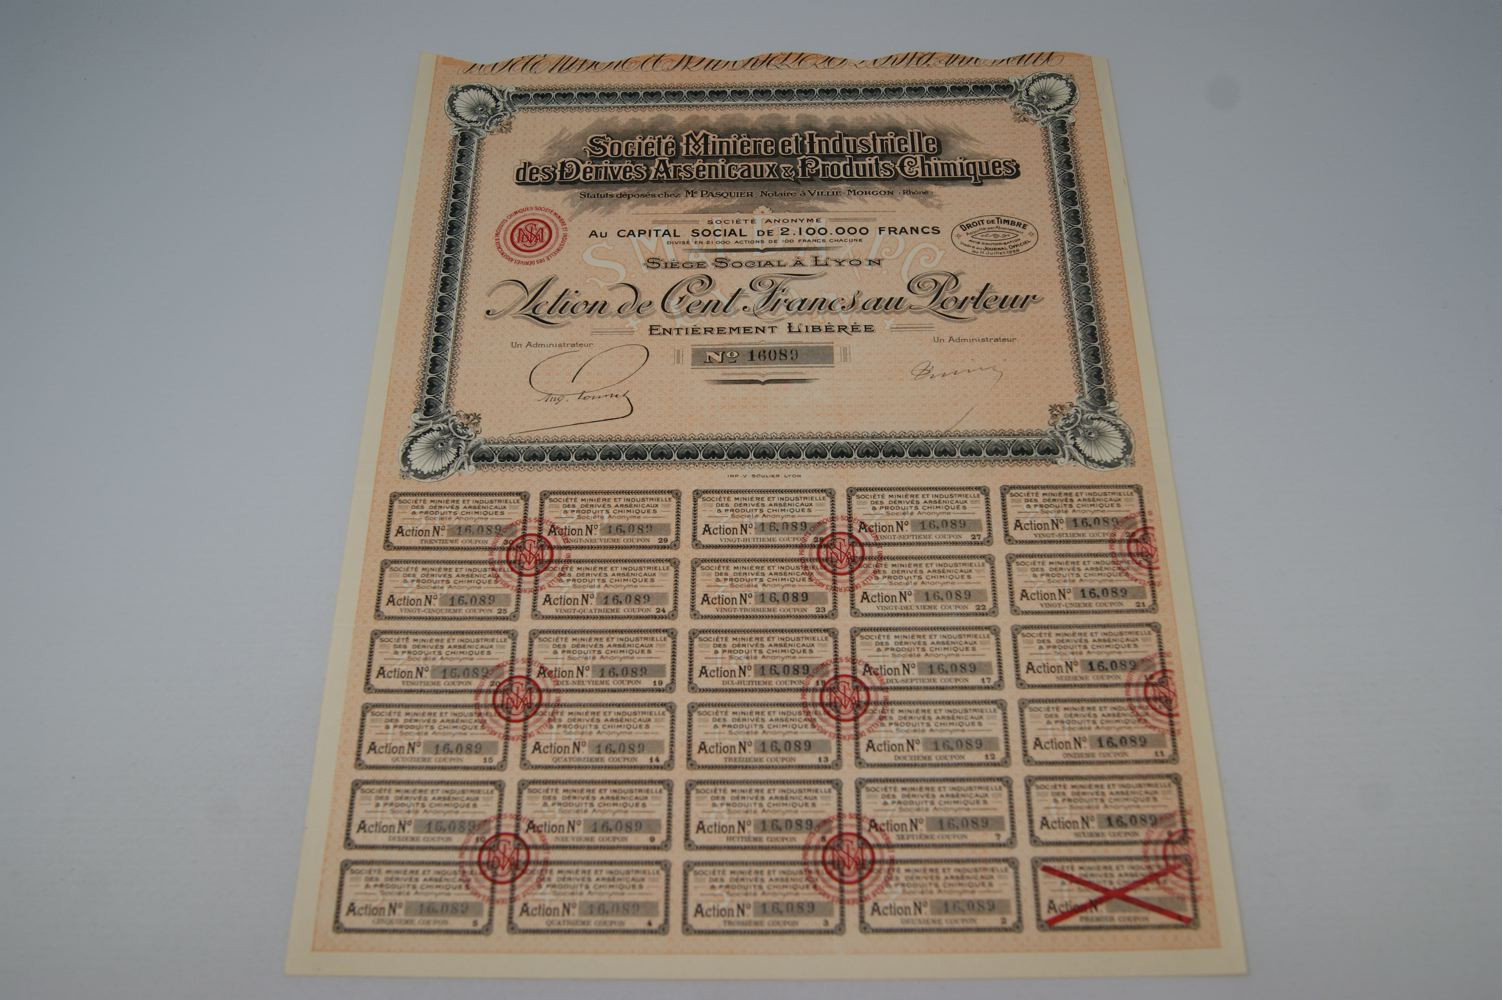 Société Minière et Industrielle
des Dérivés Arsénicaux & Produits Chimiques
Statuts déposés chez Me PASQUIER, Notaire à VILLIÉ-MORGON (Rhône)
SOCIÉTÉ ANONYME
AU CAPITAL SOCIAL DE 2.100.000 FRANCS
DIVISÉ EN 21.000 ACTIONS DE 100 FRANCS CHACUNE
DROIT DE TIMBRE
JOURNAL OFFICIEL
SIÈGE SOCIAL À LYON
Action de Cent Francs au Porteur
ENTIÈREMENT LIBÉRÉE
Un Administrateur
Nº 16089
Un Administrateur
IMP. V. SOULIER LYON
SOCIÉTÉ MINIÈRE ET INDUSTRIELLE
DES DÉRIVÉS ARSÉNICAUX
& PRODUITS CHIMIQUES
Société Anonyme
Action Nº 16,089
TRENTIÈME COUPON 30
SOCIÉTÉ MINIÈRE ET INDUSTRIELLE
DES DÉRIVÉS ARSÉNICAUX
& PRODUITS CHIMIQUES
Société Anonyme
Action Nº 16,089
VINGT-NEUVIÈME COUPON 29
SOCIÉTÉ MINIÈRE ET INDUSTRIELLE
DES DÉRIVÉS ARSÉNICAUX
& PRODUITS CHIMIQUES
Société Anonyme
Action Nº 16,089
VINGT-HUITIÈME COUPON 28
SOCIÉTÉ MINIÈRE ET INDUSTRIELLE
DES DÉRIVÉS ARSÉNICAUX
& PRODUITS CHIMIQUES
Société Anonyme
Action Nº 16,089
VINGT-SEPTIÈME COUPON 27
SOCIÉTÉ MINIÈRE ET INDUSTRIELLE
DES DÉRIVÉS ARSÉNICAUX
& PRODUITS CHIMIQUES
Société Anonyme
Action Nº 16,089
VINGT-SIXIÈME COUPON
SOCIÉTÉ MINIÈRE ET INDUSTRIELLE
DES DÉRIVÉS ARSÉNICAUX
& PRODUITS CHIMIQUES
Société Anonyme
Action Nº 16,089
VINGT-CINQUIÈME COUPON 25
SOCIÉTÉ MINIÈRE ET INDUSTRIELLE
DES DÉRIVÉS ARSÉNICAUX
& PRODUITS CHIMIQUES
Société Anonyme
Action Nº 16,089
VINGT-QUATRIÈME COUPON 24
SOCIÉTÉ MINIÈRE ET INDUSTRIELLE
DES DÉRIVÉS ARSÉNICAUX
& PRODUITS CHIMIQUES
Société Anonyme
Action Nº 16,089
VINGT-TROISIÈME COUPON 23
SOCIÉTÉ MINIÈRE ET INDUSTRIELLE
DES DÉRIVÉS ARSÉNICAUX
& PRODUITS CHIMIQUES
Société Anonyme
Action Nº 16,089
VINGT-DEUXIÈME COUPON 22
SOCIÉTÉ MINIÈRE ET INDUSTRIELLE
DES DÉRIVÉS ARSÉNICAUX
& PRODUITS CHIMIQUES
Société Anonyme
Action Nº 16,089
VINGT-UNIÈME COUPON 21
SOCIÉTÉ MINIÈRE ET INDUSTRIELLE
DES DÉRIVÉS ARSÉNICAUX
& PRODUITS CHIMIQUES
Société Anonyme
Action Nº 16,089
VINGTIÈME COUPON 20
SOCIÉTÉ MINIÈRE ET INDUSTRIELLE
DES DÉRIVÉS ARSÉNICAUX
& PRODUITS CHIMIQUES
Société Anonyme
Action Nº 16,089
DIX-NEUVIÈME COUPON 19
SOCIÉTÉ MINIÈRE ET INDUSTRIELLE
DES DÉRIVÉS ARSÉNICAUX
& PRODUITS CHIMIQUES
Société Anonyme
Action Nº 16,089
DIX-HUITIÈME COUPON 18
SOCIÉTÉ MINIÈRE ET INDUSTRIELLE
DES DÉRIVÉS ARSÉNICAUX
& PRODUITS CHIMIQUES
Société Anonyme
Action Nº 16,089
DIX-SEPTIÈME COUPON 17
SOCIÉTÉ MINIÈRE ET INDUSTRIELLE
DES DÉRIVÉS ARSÉNICAUX
& PRODUITS CHIMIQUES
Société Anonyme
Action Nº 16,089
SEIZIÈME COUPON
SOCIÉTÉ MINIÈRE ET INDUSTRIELLE
DES DÉRIVÉS ARSÉNICAUX
& PRODUITS CHIMIQUES
Société Anonyme
Action Nº 16,089
QUINZIÈME COUPON 15
SOCIÉTÉ MINIÈRE ET INDUSTRIELLE
DES DÉRIVÉS ARSÉNICAUX
& PRODUITS CHIMIQUES
Société Anonyme
Action Nº 16,089
QUATORZIÈME COUPON 14
SOCIÉTÉ MINIÈRE ET INDUSTRIELLE
DES DÉRIVÉS ARSÉNICAUX
& PRODUITS CHIMIQUES
Société Anonyme
Action Nº 16,089
TREIZIÈME COUPON 13
SOCIÉTÉ MINIÈRE ET INDUSTRIELLE
DES DÉRIVÉS ARSÉNICAUX
& PRODUITS CHIMIQUES
Société Anonyme
Action Nº 16,089
DOUZIÈME COUPON 12
SOCIÉTÉ MINIÈRE ET INDUSTRIELLE
DES DÉRIVÉS ARSÉNICAUX
& PRODUITS CHIMIQUES
Société Anonyme
Action Nº 16,089
ONZIÈME COUPON 11
SOCIÉTÉ MINIÈRE ET INDUSTRIELLE
DES DÉRIVÉS ARSÉNICAUX
& PRODUITS CHIMIQUES
Société Anonyme
Action Nº 16,089
DIXIÈME COUPON 10
SOCIÉTÉ MINIÈRE ET INDUSTRIELLE
DES DÉRIVÉS ARSÉNICAUX
& PRODUITS CHIMIQUES
Société Anonyme
Action Nº 16,089
NEUVIÈME COUPON 9
SOCIÉTÉ MINIÈRE ET INDUSTRIELLE
DES DÉRIVÉS ARSÉNICAUX
& PRODUITS CHIMIQUES
Société Anonyme
Action Nº 16,089
HUITIÈME COUPON 8
SOCIÉTÉ MINIÈRE ET INDUSTRIELLE
DES DÉRIVÉS ARSÉNICAUX
& PRODUITS CHIMIQUES
Société Anonyme
Action Nº 16,089
SEPTIÈME COUPON 7
SOCIÉTÉ MINIÈRE ET INDUSTRIELLE
DES DÉRIVÉS ARSÉNICAUX
& PRODUITS CHIMIQUES
Société Anonyme
Action Nº 16,089
SIXIÈME COUPON
SOCIÉTÉ MINIÈRE ET INDUSTRIELLE
DES DÉRIVÉS ARSÉNICAUX
& PRODUITS CHIMIQUES
Société Anonyme
Action Nº 16,089
CINQUIÈME COUPON 5
SOCIÉTÉ MINIÈRE ET INDUSTRIELLE
DES DÉRIVÉS ARSÉNICAUX
& PRODUITS CHIMIQUES
Société Anonyme
Action Nº 16,089
QUATRIÈME COUPON 4
SOCIÉTÉ MINIÈRE ET INDUSTRIELLE
DES DÉRIVÉS ARSÉNICAUX
& PRODUITS CHIMIQUES
Société Anonyme
Action Nº 16,089
TROISIÈME COUPON 3
SOCIÉTÉ MINIÈRE ET INDUSTRIELLE
DES DÉRIVÉS ARSÉNICAUX
& PRODUITS CHIMIQUES
Société Anonyme
Action Nº 16,089
DEUXIÈME COUPON 2
SOCIÉTÉ MINIÈRE ET INDUSTRIELLE
DES DÉRIVÉS ARSÉNICAUX
& PRODUITS CHIMIQUES
Société Anonyme
Action Nº
PREMIER COUPON